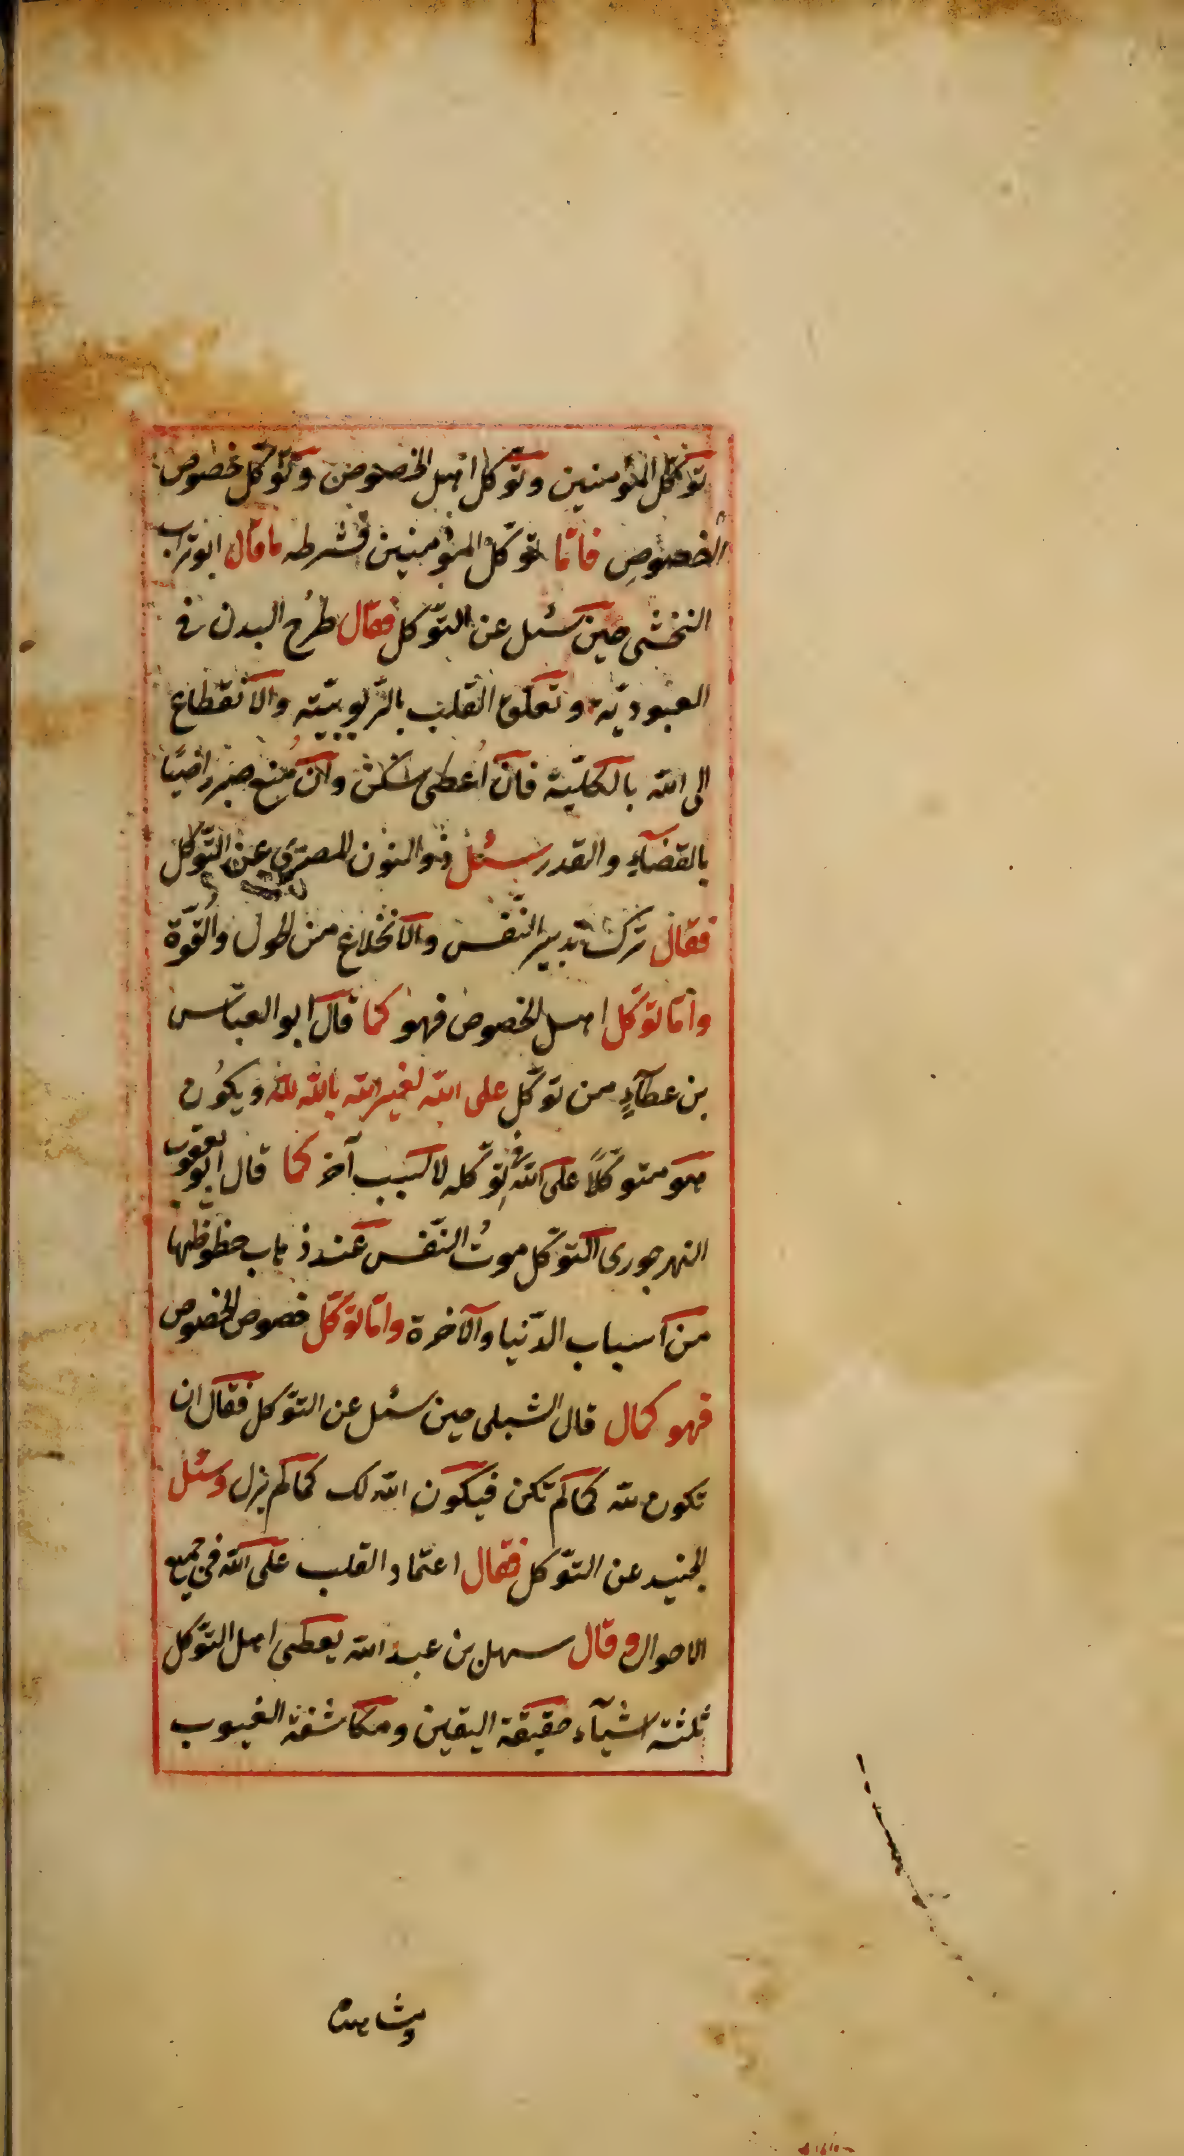 توكّل المؤمنين وتوكّل اهل الخصوص وتوكّل خصوص
الخصوصِ فامّا توكّل المؤمنين فشرطه ما قال ابو تراب
النخشبى حين سئل عن التوّكل فقال طرحُ البدن فى
العبوديّة وتعلّق القلب بالرّبوبيّته والانقطاع
الى الله بالكليّة فان اُعطى شكر وان مُنِع صبر راضيًا
بالقضآءِ والقدر سئل ذو النون المصرى عن التوّكل
فقال ترك تدبير النّفس والانخلاع من الحول والقوّة
وامّا توكّل اهل الخصوص فهو كما قال ابو العبّاس
بن عطآءٍ من توكّل على الله لغير الله بالله لله ويكُون
هو متوكّلًا على الله فى توِكّله لا لسبب آخر كما قال ابو يعقوب
النهرجورى التوكّل موتُ النّفس عند ذهاب حظوظها
من اسباب الدّنيا والآخرة وامّا توكّل خصوص الخصوص
فهو كمال قال الشبلى حين سئل عن التوّكل فقال ان
تكون لله كما لم تكن فيكون الله لك كما لم يزل وسئل
الجنيد عن التوّكل فقال اعتماد القلب على الله فى جميع
الاحوال وقال سهل بن عبد الله يعطى اهل التوّكل
ثلثة اشيآء حقيقة اليقين ومكاشفة الغيوب
ومشاهدة